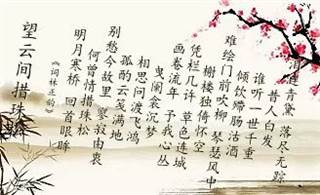 望云间 措珠
《词林正韵》
明月寒桥 回首眼眸
何曾情措珠松
别愁今故里 寥寂由衷
孤酌云笺满地
相思问渡飞鸿
曳阑裳沉梦
画卷流年 予我心丛
凭栏几许 草色连城
榭楼独倚怀空
难绘门前吹柳 琴瑟风中
倾饮滞肠沽酒
谁听一世千重
昔人白发
连青黛 落尽无踪